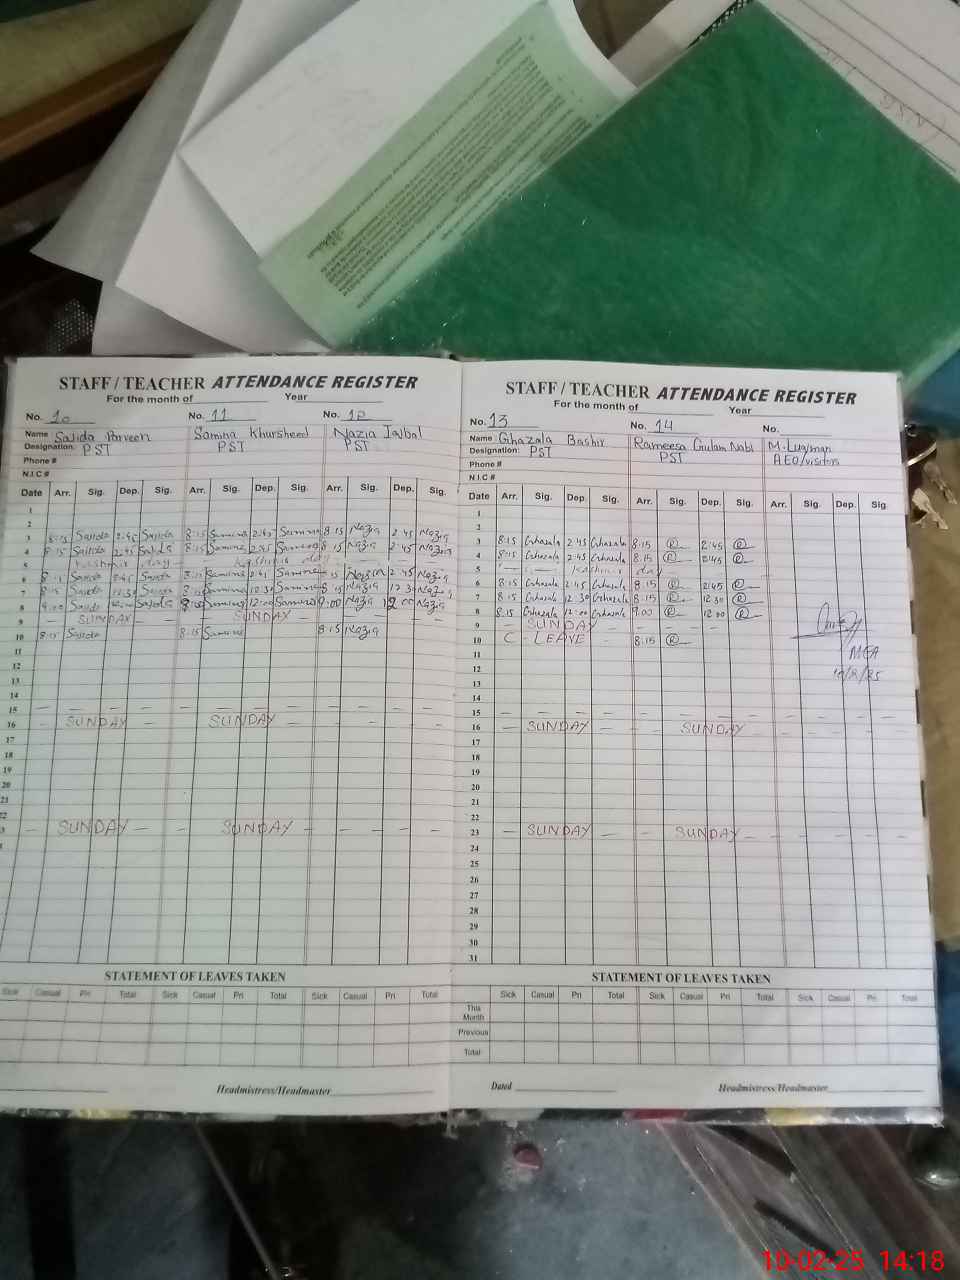 STAFF / TEACHER ATTENDANCE REGISTER
For the month of Year
No. 10 No. 11 No. 12
Name Sajida Parveen Samina Khursheed Nazia Iqbal
Designation: PST PST PST
Phone #
N.I.C #
Date Arr. Sig. Dep. Sig. Arr. Sig. Dep. Sig. Arr. Sig. Dep. Sig.
1
2
3 8:15 Sajida 2:45 Sajida 8:15 Samina 2:45 Samina 8:15 Nazia 2:45 Nazia
4 8:15 Sajida 2:45 Sajida 8:15 Samina 2:45 Samina 8:15 Nazia 2:45 Nazia
5 Kashmir day Kashmir day
6 Sajida 2:45 Sajida 8:15 Samina 2:45 Samina Nazia 2:45 Nazia
7 8:15 Sajida 12:30 Sajida 8:15 Samina 12:30 Samina 8:15 Nazia 12:30 Nazia
8 9:00 Sajida Sajida Samina 12:00 Samina 9:00 Nazia 12:00 Nazia
9 — SUNDAY — — SUNDAY — — — —
10 8:15 Sajida 8:15 Samina 8:15 Nazia
11
12
13
14
15
16 — SUNDAY — — SUNDAY — — — —
17
18
19
20
21
22
— SUNDAY — — SUNDAY — — — —
STATEMENT OF LEAVES TAKEN
Sick Casual Pri Total Sick Casual Pri Total Sick Casual Pri Total
Headmistress/Headmaster
STAFF / TEACHER ATTENDANCE REGISTER
For the month of Year
No. 13 No. 14 No.
Name Ghazala Bashir Rameesa Gulam Nabi M. Luqman
Designation: PST PST AEO/visitors
Phone #
N.I.C #
Date Arr. Sig. Dep. Sig. Arr. Sig. Dep. Sig. Arr. Sig. Dep. Sig.
1
2
3 8:15 Ghazala 2:45 Ghazala 8:15 R 2:45 R
4 8:15 Ghazala 2:45 Ghazala 8:15 R 2:45 R
5 — — Kashmir day
6 8:15 Ghazala 2:45 Ghazala 8:15 R 2:45 R
7 8:15 Ghazala 12:30 Ghazala 8:15 R 12:30 R
8 8:15 Ghazala 12:00 Ghazala 9:00 R 12:00 R
9 — SUNDAY — — — — —
10 C - LEAVE 8:15 R
MEA
11
12
13
14
15
16 — SUNDAY — — SUNDAY — — — —
17
18
19
20
21
22
23 — SUNDAY — — SUNDAY — — — —
24
25
26
27
28
29
30
31
STATEMENT OF LEAVES TAKEN
Sick Casual Pri Total Sick Casual Pri Total Sick Casual Pri Total
This Month
Previous
Total
Dated Headmistress/Headmaster
10-02-25 14:18